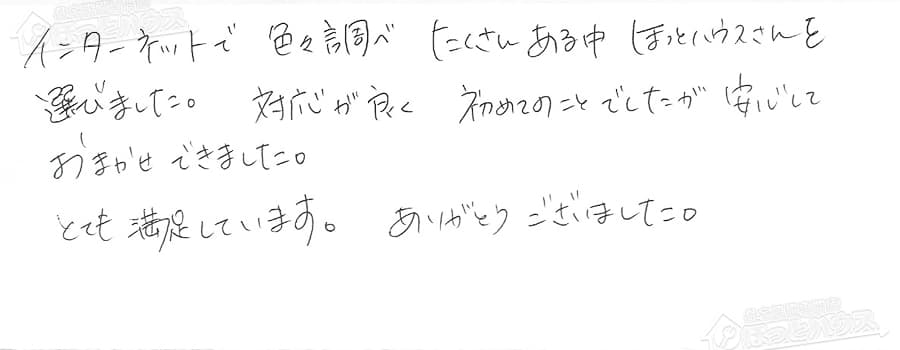 インターネットで 色々調べ たくさん ある中 ほっとハウスさんを
選びました。 対応が良く 初めてのことでしたが 安心して
おまかせ できました。
とても 満足しています。 ありがとう ございました。
ほっとハウス